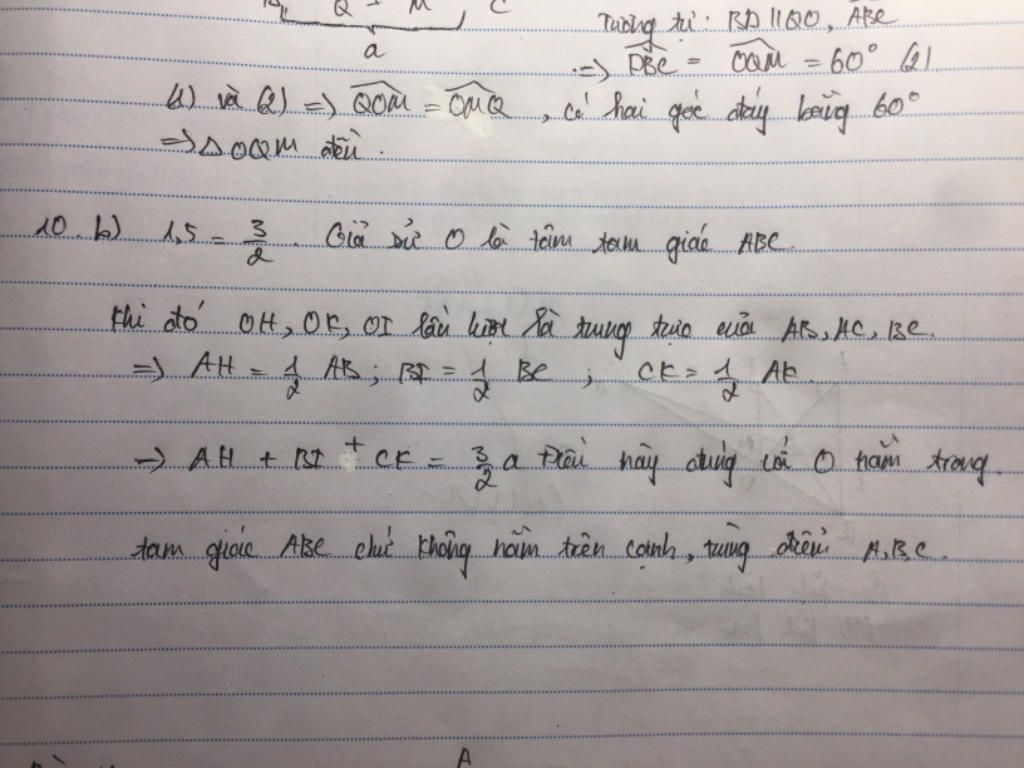 Q M C
a
Tương tự: BD // QO, ABC
=> DBC = OQM = 60° (2)
(1) và (2) => QOM = OMQ, có hai góc đáy bằng 60°
=> △ OQM đều.
10. b) 1,5 = 3/2. Giả sử O là tâm tam giác ABC.
Khi đó OH, OK, OI lần lượt là trung trực của AB, AC, BC.
=> AH = 1/2 AB; BI = 1/2 BC; CK = 1/2 AK.
=> AH + BI + CK = 3/2 a Điều này đúng với O nằm trong
tam giác ABC chứ không nằm trên cạnh, trùng điểm A, B, C.
A